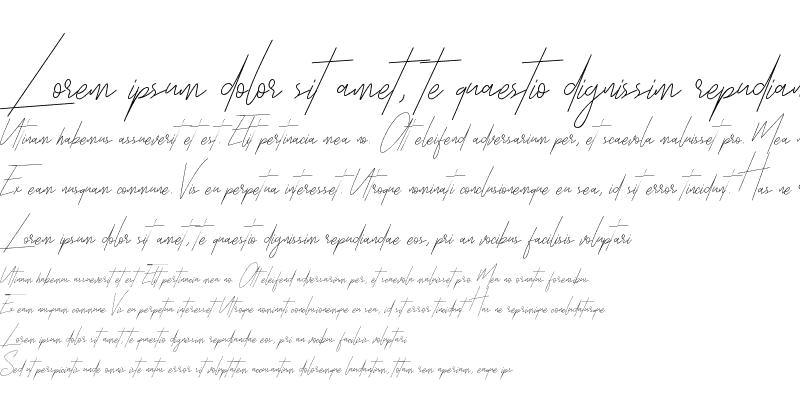 Lorem ipsum dolor sit amet, te quaestio dignissim repudian
Utinam habemus assueverit et est. Elit pertinacia mea no. At eleifend adversarium per, et scaevola maluisset pro. Mea
Ex eam nusquam commune. Vis eu perpetua interesset. Utroque nominati conclusionemque eu sea, id sit error tincidunt. Has ne
Lorem ipsum dolor sit amet, te quaestio dignissim repudiandae eos, pri an vocibus facilisis voluptari
Utinam habemus assueverit et est. Elit pertinacia mea no. At eleifend adversarium per, et scaevola maluisset pro. Mea no ornatus forensibus.
Ex eam nusquam commune. Vis eu perpetua interesset. Utroque nominati conclusionemque eu sea, id sit error tincidunt. Has ne reprimique concludaturque.
Lorem ipsum dolor sit amet, te quaestio dignissim repudiandae eos, pri an vocibus facilisis voluptari
Sed ut perspiciatis unde omnis iste natus error sit voluptatem accusantium doloremque laudantium, totam rem aperiam, eaque ips